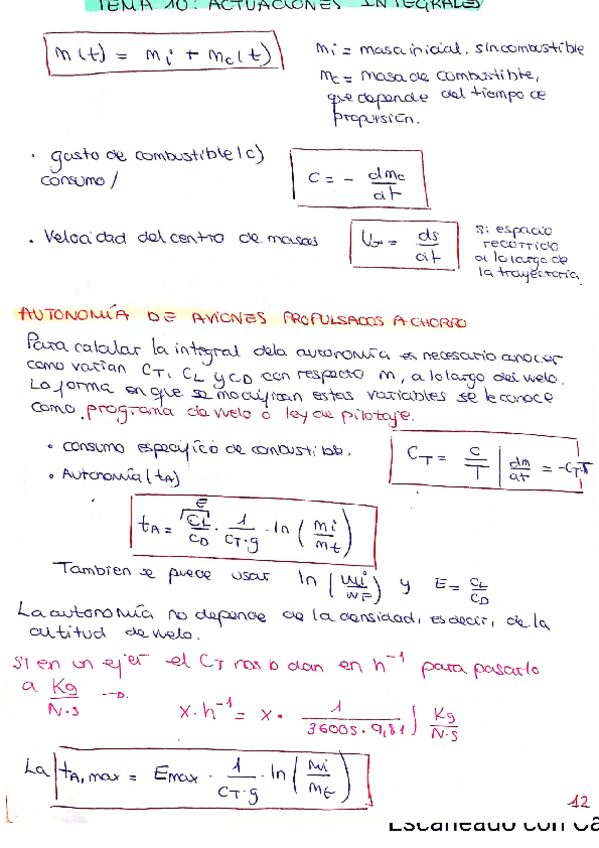 TEMA 10: ACTUACIONES INTEGRALES
m(t) = mi + mc(t)
mi = masa inicial, sin combustible
mc = masa de combustible,
que depende del tiempo de
propulsión.
· gasto de combustible (c)
consumo /
C = - dmc/dt
· Velocidad del centro de masas
= ds/dt
s: espacio
recorrido
a lo largo de
la trayectoria
AUTONOMÍA DE AVIONES PROPULSADOS A CHORRO
Para calcular la integral de la autonomía es necesario conocer
como varian CT, CL y CD con respecto m, a lo largo del vuelo.
La forma en que se modifican estas variables se le conoce
como programa de vuelo o ley de pilotaje.
· consumo específico de combustib.
CT = C/T | dm/dt = -CT·T
· Autonomía (tA)
E
tA = CL/CD · 1/CT·g · ln (mi/mf)
Tambien se puede usar ln (Wi/WF) y E = CL/CD
La autonomía no depende de la densidad, es decir, de la
altitud de vuelo.
Si en un ejer el CT nos lo dan en h⁻¹ para pasarlo
a Kg/N·s →
x·h⁻¹ = x · 1/3600s·9,81 ) Kg/N·s
La tA,max = Emax · 1/CT·g · ln (mi/mf)
12
Escaneado con Ca